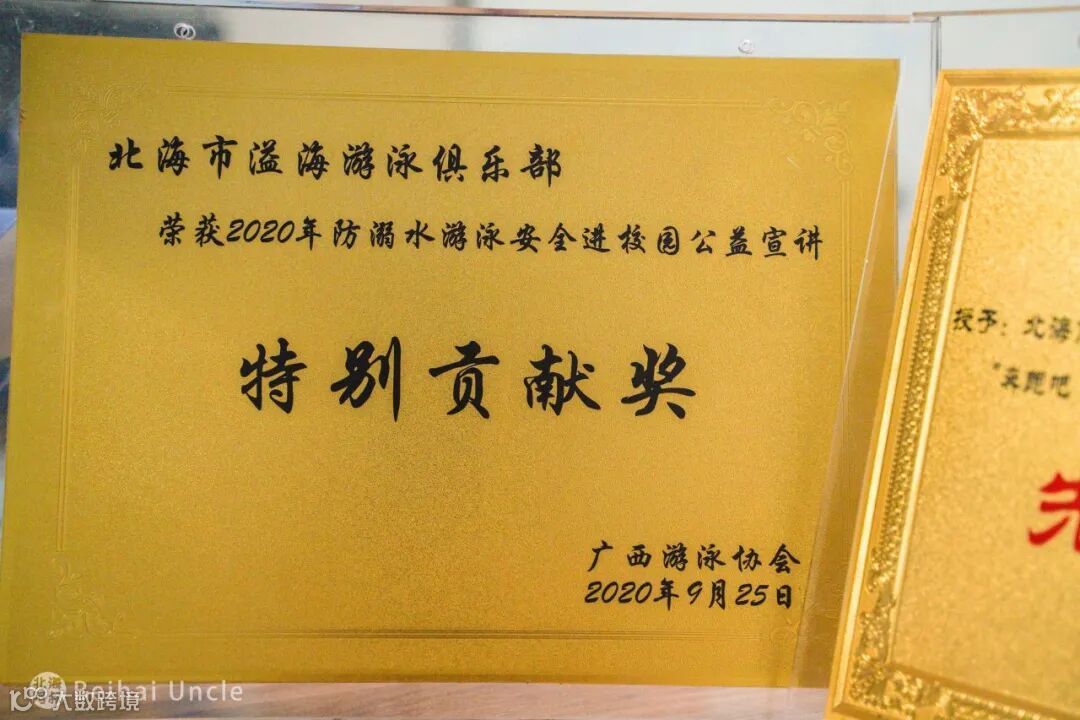 北海市溢海游泳俱乐部
荣获2020年防溺水游泳安全进校园公益宣讲
特别贡献奖
广西游泳协会
2020年9月25日
授予：北海
"来跑吧
先
Beihai Uncle
大数跨境